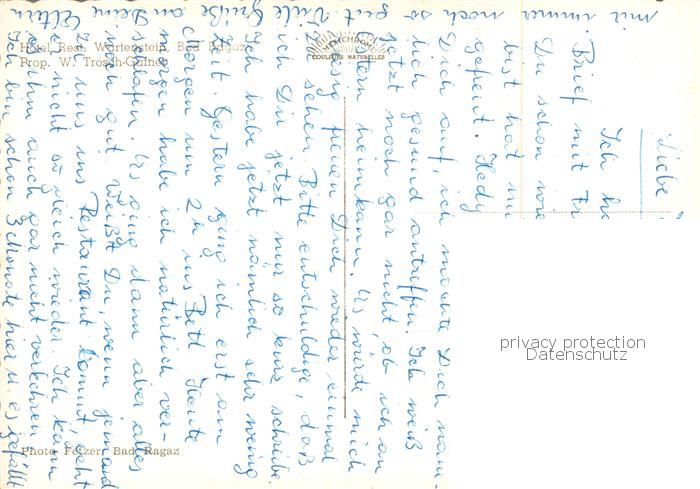 Liebe
Ich ha
Brief mit Fr
Du schon wie
bist hat mi
gefreut. Hedy
Dich auf, ich möchte Dich näm-
lich gesund antreffen. Ich weiß
jetzt noch gar nicht, ob ich an
Ostern heimkann. Es würde mich
riesig freuen Dich wieder einmal
zu sehen. Bitte entschuldige, daß
ich Dir jetzt nur so kurz schreibe.
Ich habe jetzt nämlich sehr wenig
Zeit. Gestern ging ich erst am
Morgen um 2h ins Bett. Heute
morgen habe ich natürlich ver-
schlafen. Es ging dann aber alles
noch gut. Weißt Du, wenn jemand
zu uns ins Restaurant kommt, geht
er nicht so gleich wieder. Ich kann
mit ihm auch gar nicht verkehren
Ich bin schon 3 Monate hier u. es gefällt
mir immer noch so gut. Viele Grüße an Deine Eltern
Hotel Rest. Wartenstein, Bad Ragaz
Prop. W. Trösch-Gafner
MEXICHROM
COULEURS NATURELLES
Photo Fetzer, Bad Ragaz
privacy protection
Datenschutz